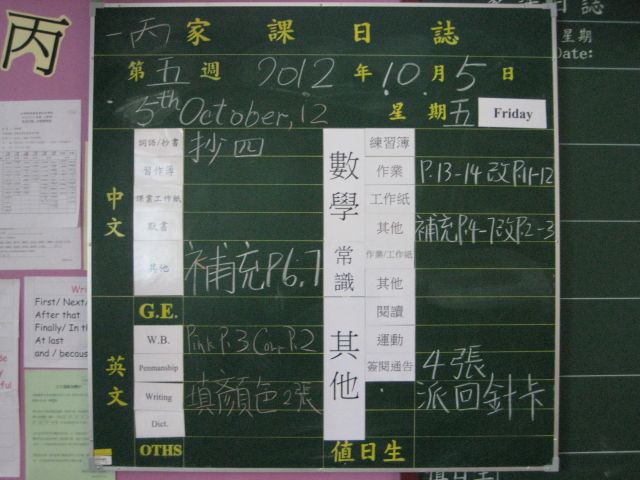 丙
一丙家課日誌
第五週 2012年10月5日
5th October, 12 星期五 Friday
中文
詞語/抄書 抄四
習作簿
課業工作紙
默書
其他 補充P6.7
英文
G.E.
W.B. Pink P.3 Corr P.2
Penmanship
Writing 填顏色2張
Dict.
OTHS
數學
練習簿
作業 P.13-14 改P.11-12
工作紙
其他 補充P.4-7改P.2-3
常識
作業/工作紙
其他
其他
閱讀
運動
簽閱通告 4張
派回針卡
值日生
First/ Next/
After that
Finally/ In th
At last
and / becaus
日誌
星期
Date:
值日生